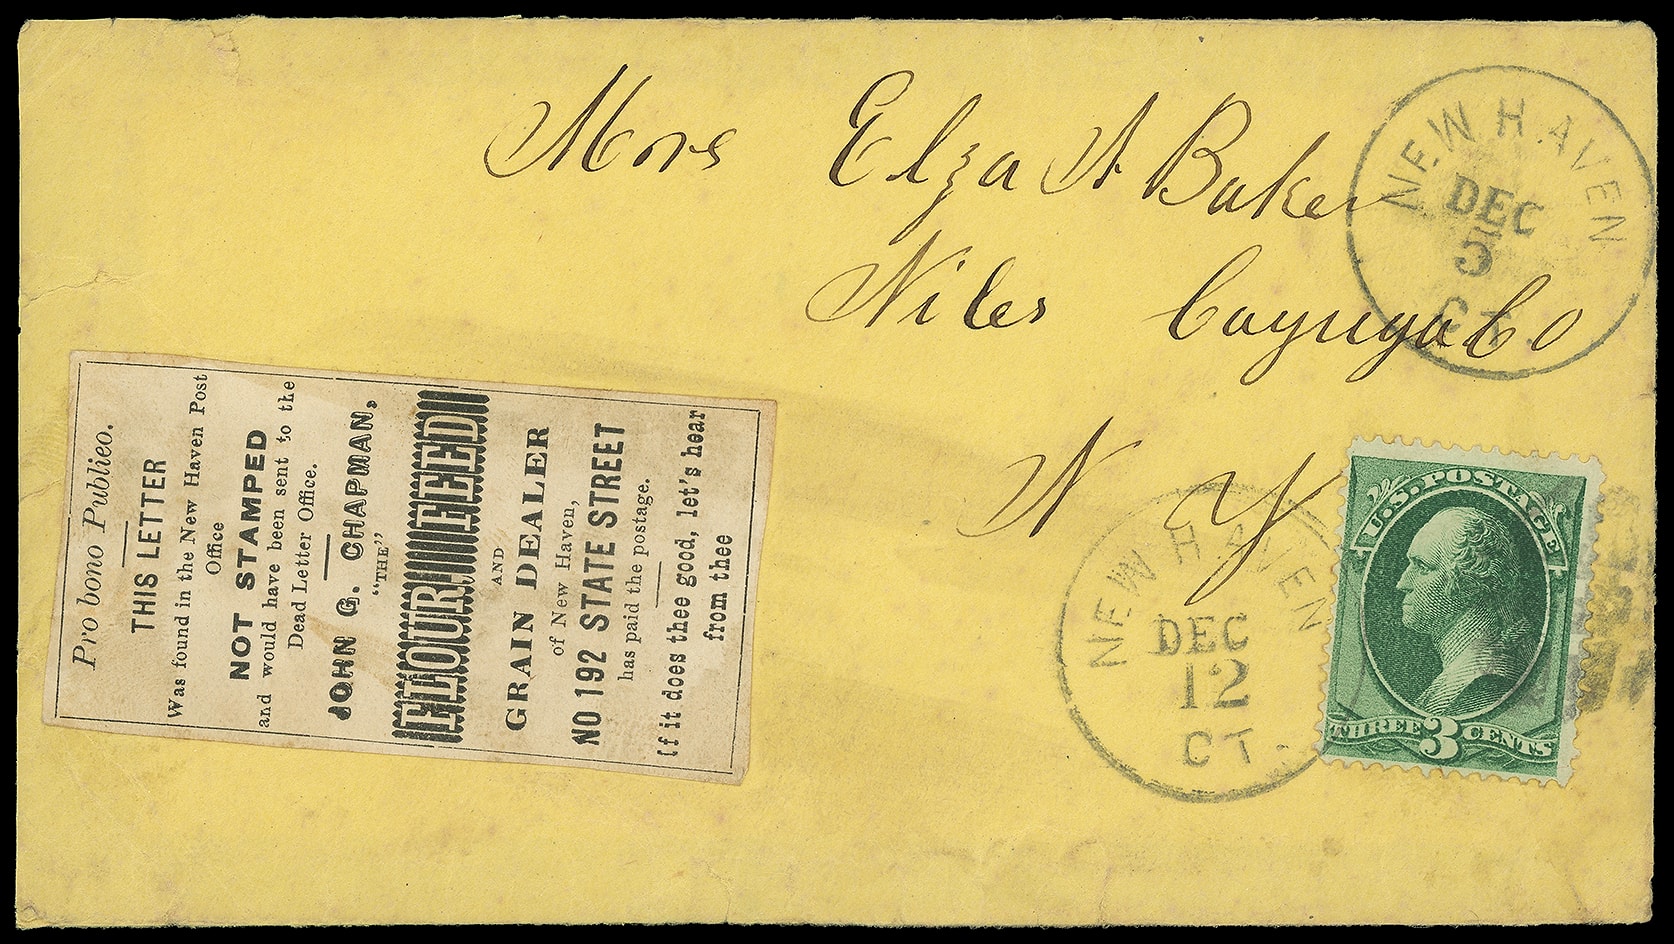 Mrs Elza A Baker
Niles Cayuga Co
N Y
NEW HAVEN
DEC
5
CT.
NEW HAVEN
DEC
12
CT.
U.S. POSTAGE
THREE 3 CENTS
Pro bono Publico.
THIS LETTER
Was found in the New Haven Post
Office
NOT STAMPED
and would have been sent to the
Dead Letter Office.
JOHN G. CHAPMAN,
"THE"
FLOUR, FEED
AND
GRAIN DEALER
of New Haven,
NO 192 STATE STREET
has paid the postage.
If it does thee good, let's hear
from thee